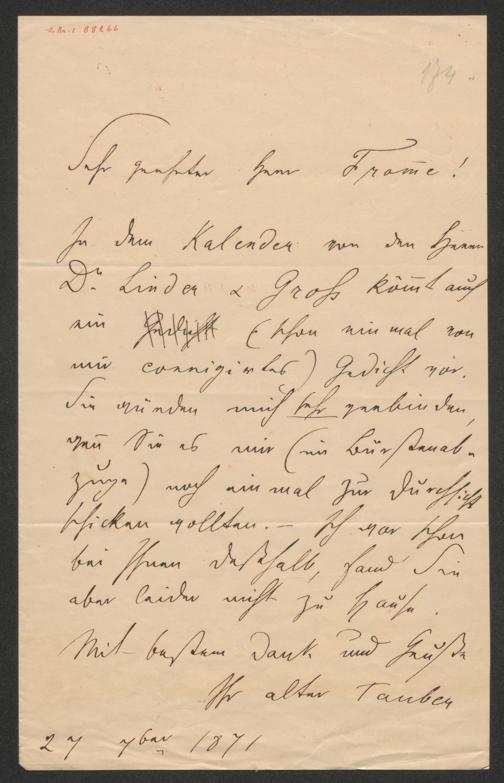 174
Sehr geehrter Herr Fromme!
In dem Kalender von den Herren
Dr. Linder & Groß kömmt auch
ein Gedicht (schon ein mal von
mir corrigirtes) Gedicht vor.
Sie würden mich sehr verbinden,
wenn Sie es mir (im Bürstenab-
zuge) noch ein mal zur Durchsicht
schicken wollten. – Ich war schon
bei Ihnen deßhalb, fand Sie
aber leider nicht zu Hause.
Mit bestem Dank und Gruße
Ihr alter Tauber
27 7ber 1871